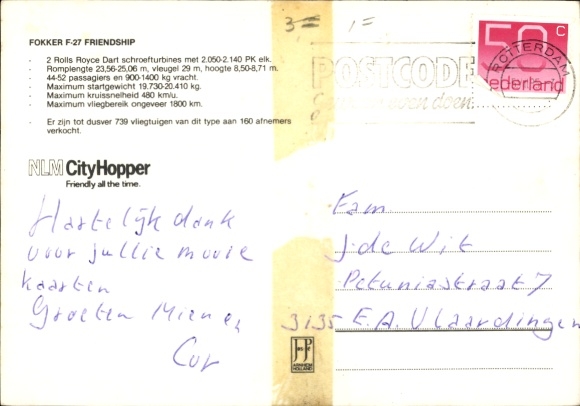 FOKKER F-27 FRIENDSHIP
- 2 Rolls Royce Dart schroefturbines met 2.050-2.140 PK elk.
- Romplengte 23,56-25,06 m, vleugel 29 m, hoogte 8,50-8,71 m.
- 44-52 passagiers en 900-1400 kg vracht.
- Maximum startgewicht 19.730-20.410 kg.
- Maximum kruissnelheid 480 km/u.
- Maximum vliegbereik ongeveer 1800 km.
- Er zijn tot dusver 739 vliegtuigen van dit type aan 160 afnemers
verkocht.
NLM CityHopper
Friendly all the time.
Hartelijk dank
voor jullie mooie
kaarten
Groeten Mien en
Cor
3= 1=
POSTCODE
even doen
ROTTERDAM
50 c
nederland
Fam
J. de Wit
Petuniastraat 7
3135 E.A. Vlaardingen
ARNHEM
HOLLAND